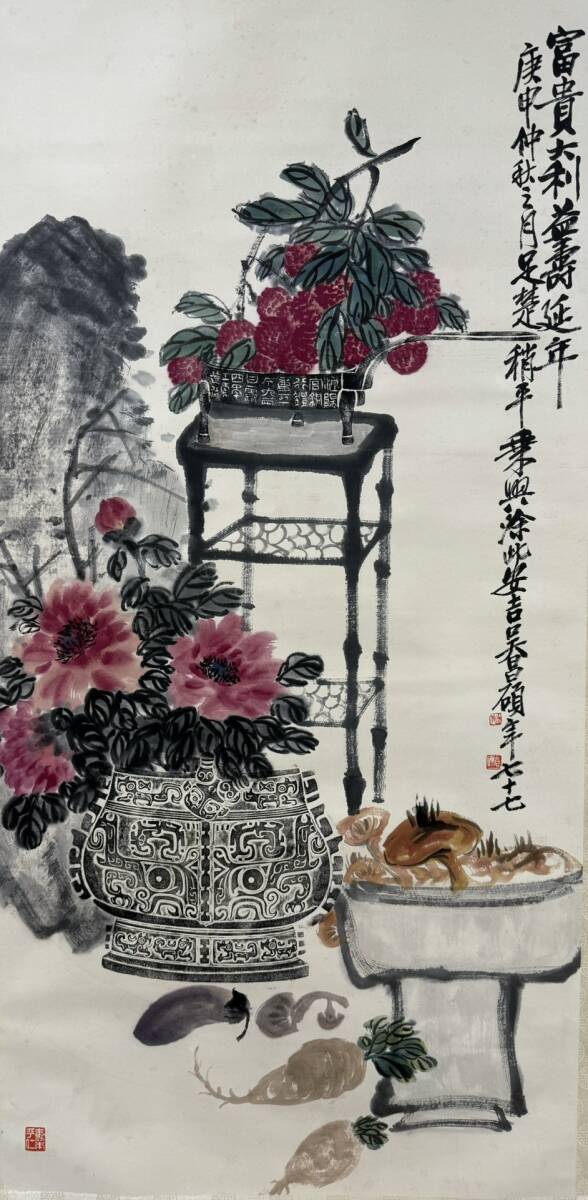 富貴大利益壽延年
庚申仲秋之月足楚稍平乘興塗此安吉吳昌碩年七十七